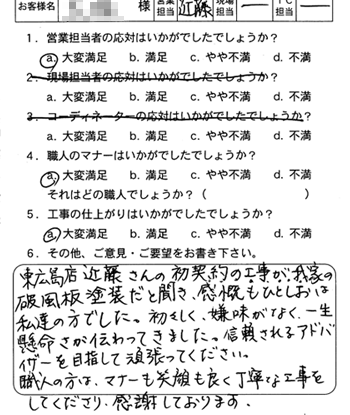 お客様名 様 営業担当 近藤 現場担当 ー 担当 ー
1．営業担当者の応対はいかがでしたでしょうか？
a. 大変満足 b. 満足 c. やや不満 d. 不満
2．現場担当者の応対はいかがでしたでしょうか？
a. 大変満足 b. 満足 c. やや不満 d. 不満
3．コーディネーターの応対はいかがでしたでしょうか？
a. 大変満足 b. 満足 c. やや不満 d. 不満
4．職人のマナーはいかがでしたでしょうか？
a. 大変満足 b. 満足 c. やや不満 d. 不満
それはどの職人でしょうか？（ ）
5．工事の仕上がりはいかがでしたでしょうか？
a. 大変満足 b. 満足 c. やや不満 d. 不満
6．その他、ご意見・ご要望をお書き下さい。
東広島店 近藤さんの初契約の工事が、我家の
破風板塗装だと聞き、感慨もひとしおは
私達の方でした。初々しく、嫌味がなく、一生
懸命さが伝わってきました。信頼されるアドバ
イザーを目指して頑張ってください。
職人の方は、マナーも笑顔も良く丁寧な工事を
してくださり、感謝しております。